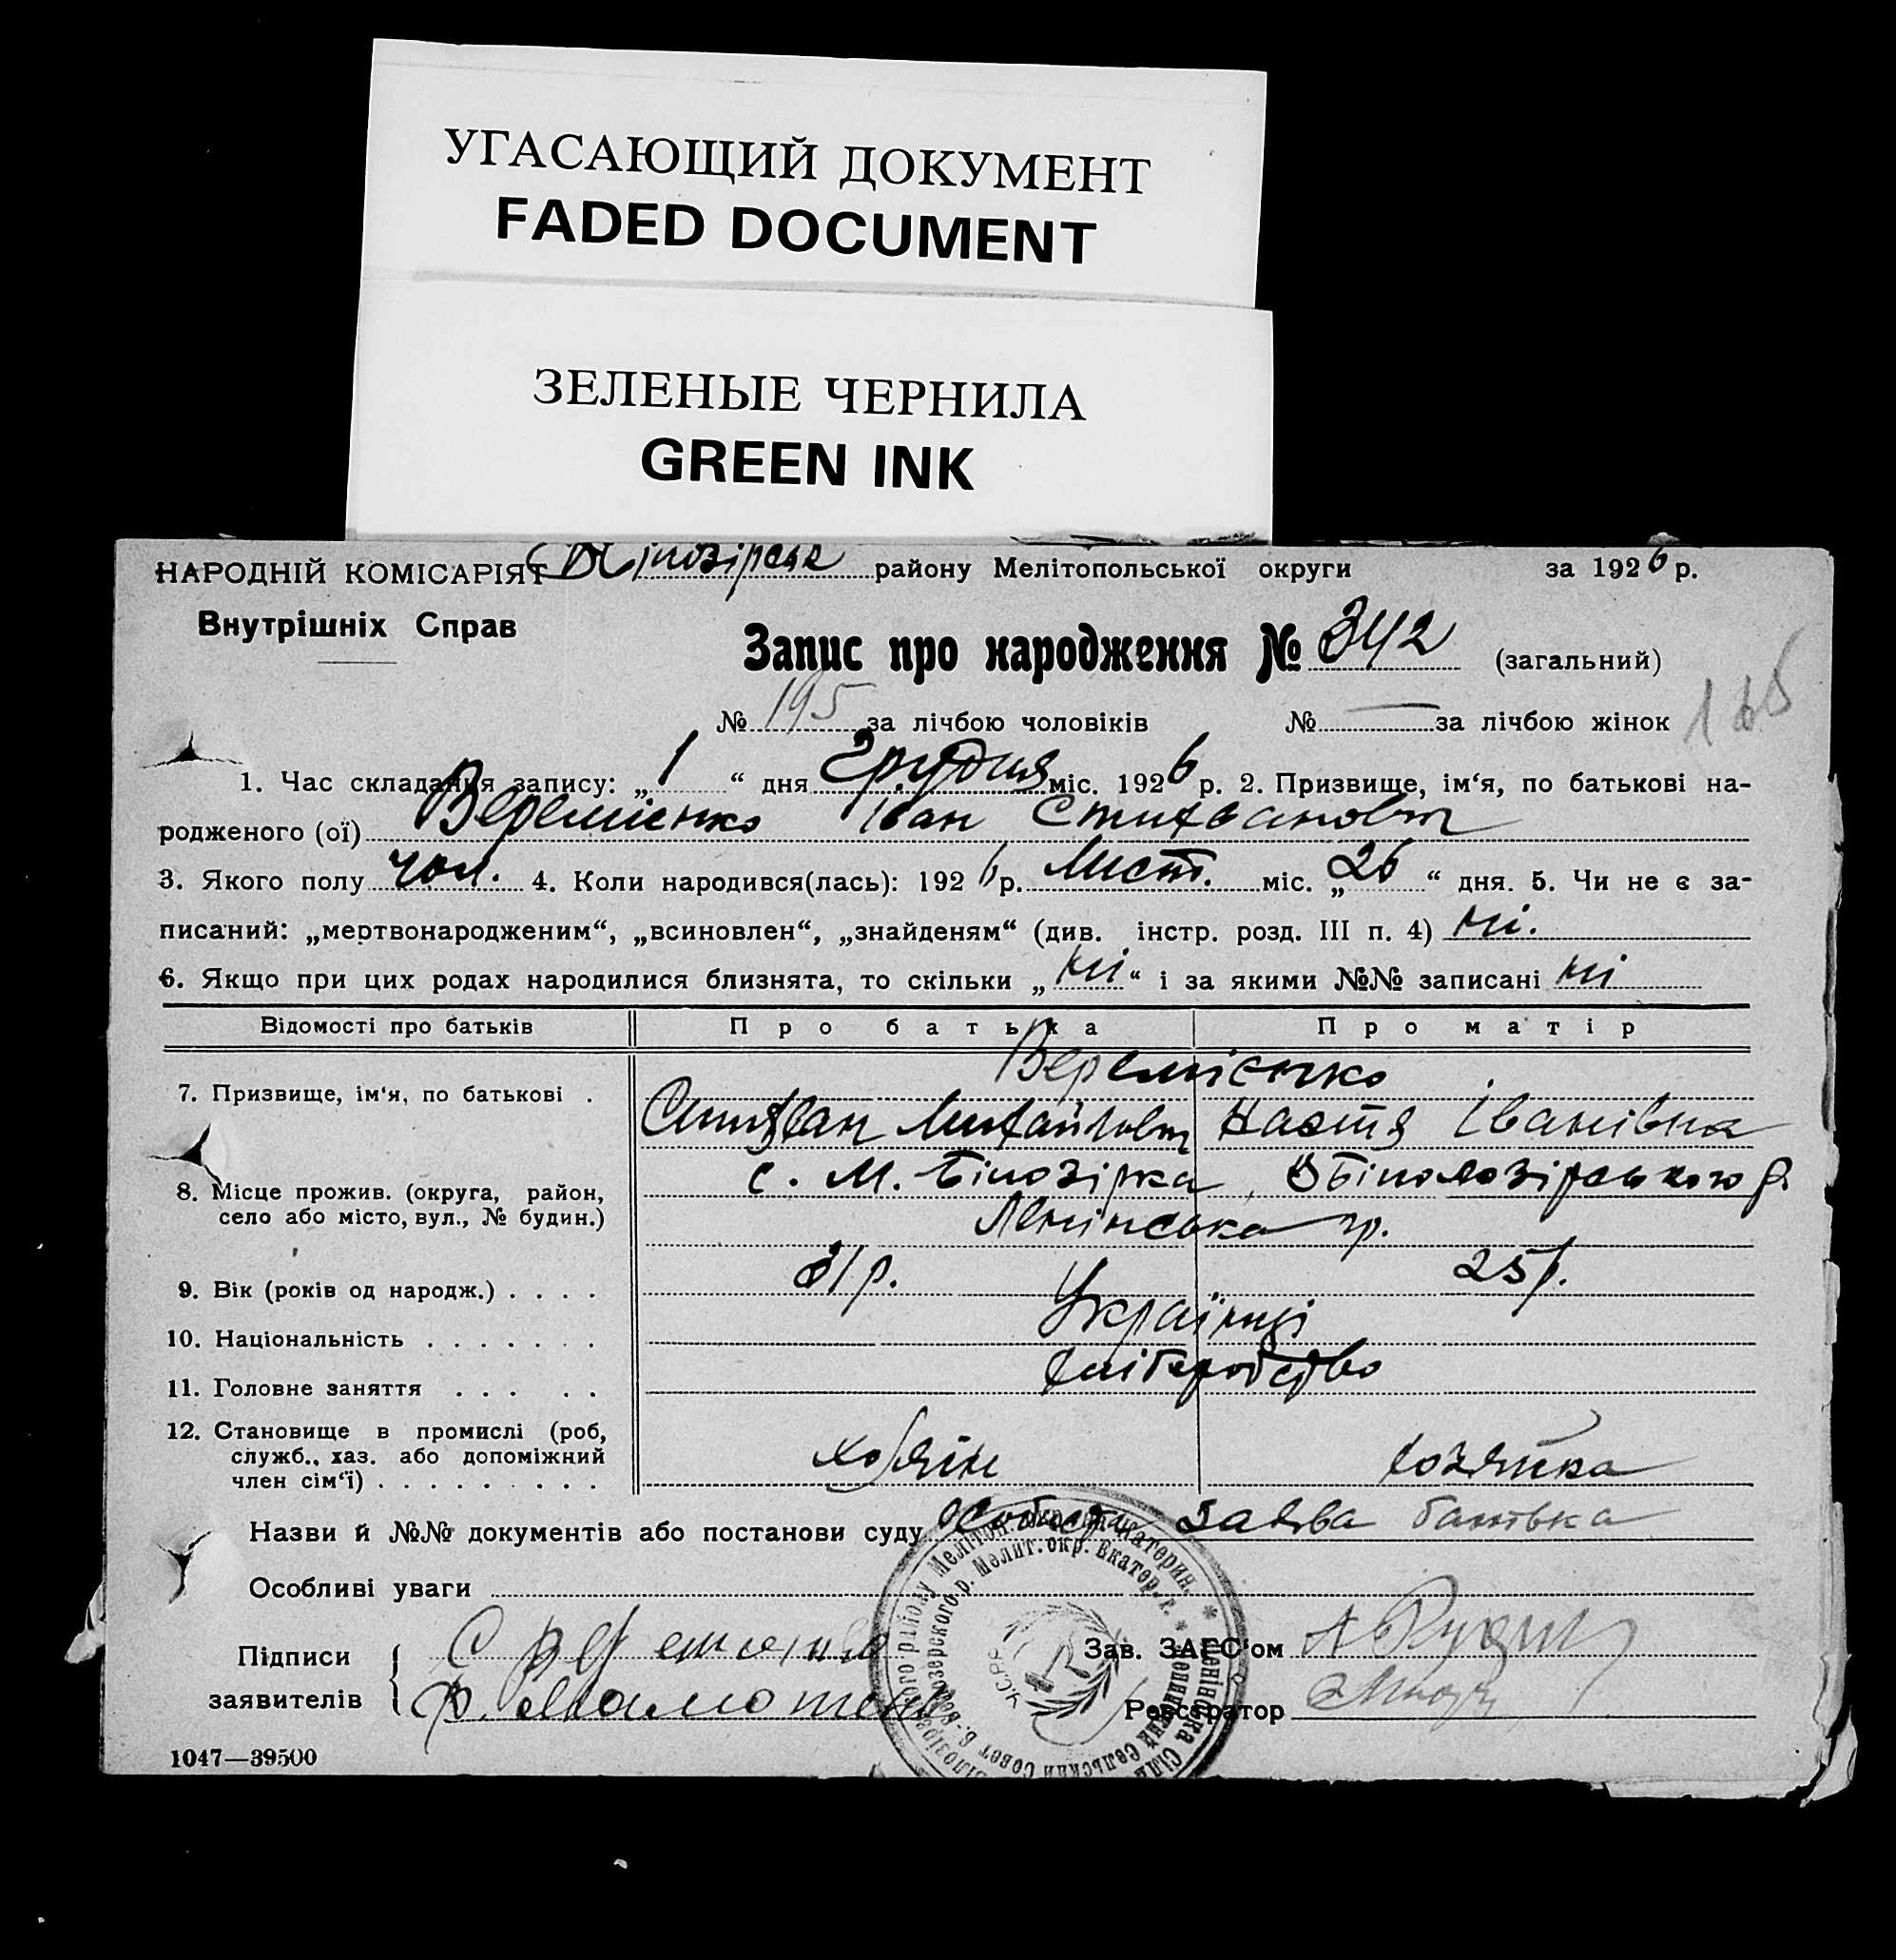 УГАСАЮЩИЙ ДОКУМЕНТ
FADED DOCUMENT
ЗЕЛЕНЫЕ ЧЕРНИЛА
GREEN INK
НАРОДНІЙ КОМІСАРІЯТ району Мелітопольської округи за 1926 р.
Внутрішніх Справ
Запис про народження № 342 (загальний)
№ 195 за лічбою чоловіків № — за лічбою жінок
1. Час складання запису: „1“ дня Грудня міс. 1926 р. 2. Призвище, ім‘я, по батькові на-
родженого (ої) Веремієнко Іван
3. Якого полу чол. 4. Коли народився(лась): 1926 р. Лист. міс. „26“ дня. 5. Чи не є за-
писаний: „мертвонародженим“, „всиновлен“, „знайденям“ (див. інстр. розд. III п. 4) ні.
6. Якщо при цих родах народилися близнята, то скільки „ні“ і за якими №№ записані ні
Відомості про батьків Про батька Про матір
Веремієнко
7. Призвище, ім‘я, по батькові . Настя Іванівна
с. М. Білозірка,
8. Місце прожив. (округа, район,
село або місто, вул., № будин.) Ленінська
9. Вік (років од народж.) . . . . 31 р. 25 р.
10. Національність . . . . . . . Українці
11. Головне заняття . . . . . хліборобство
12. Становище в промислі (роб,
служб., хаз. або допоміжний хозяїн хозяйка
член сім‘ї) . . . . . . . . .
Назви й №№ документів або постанови суду заява батька
Особливі уваги
Підписи Зав. ЗАГС‘ом
заявителів Реєстратор
1047—39500